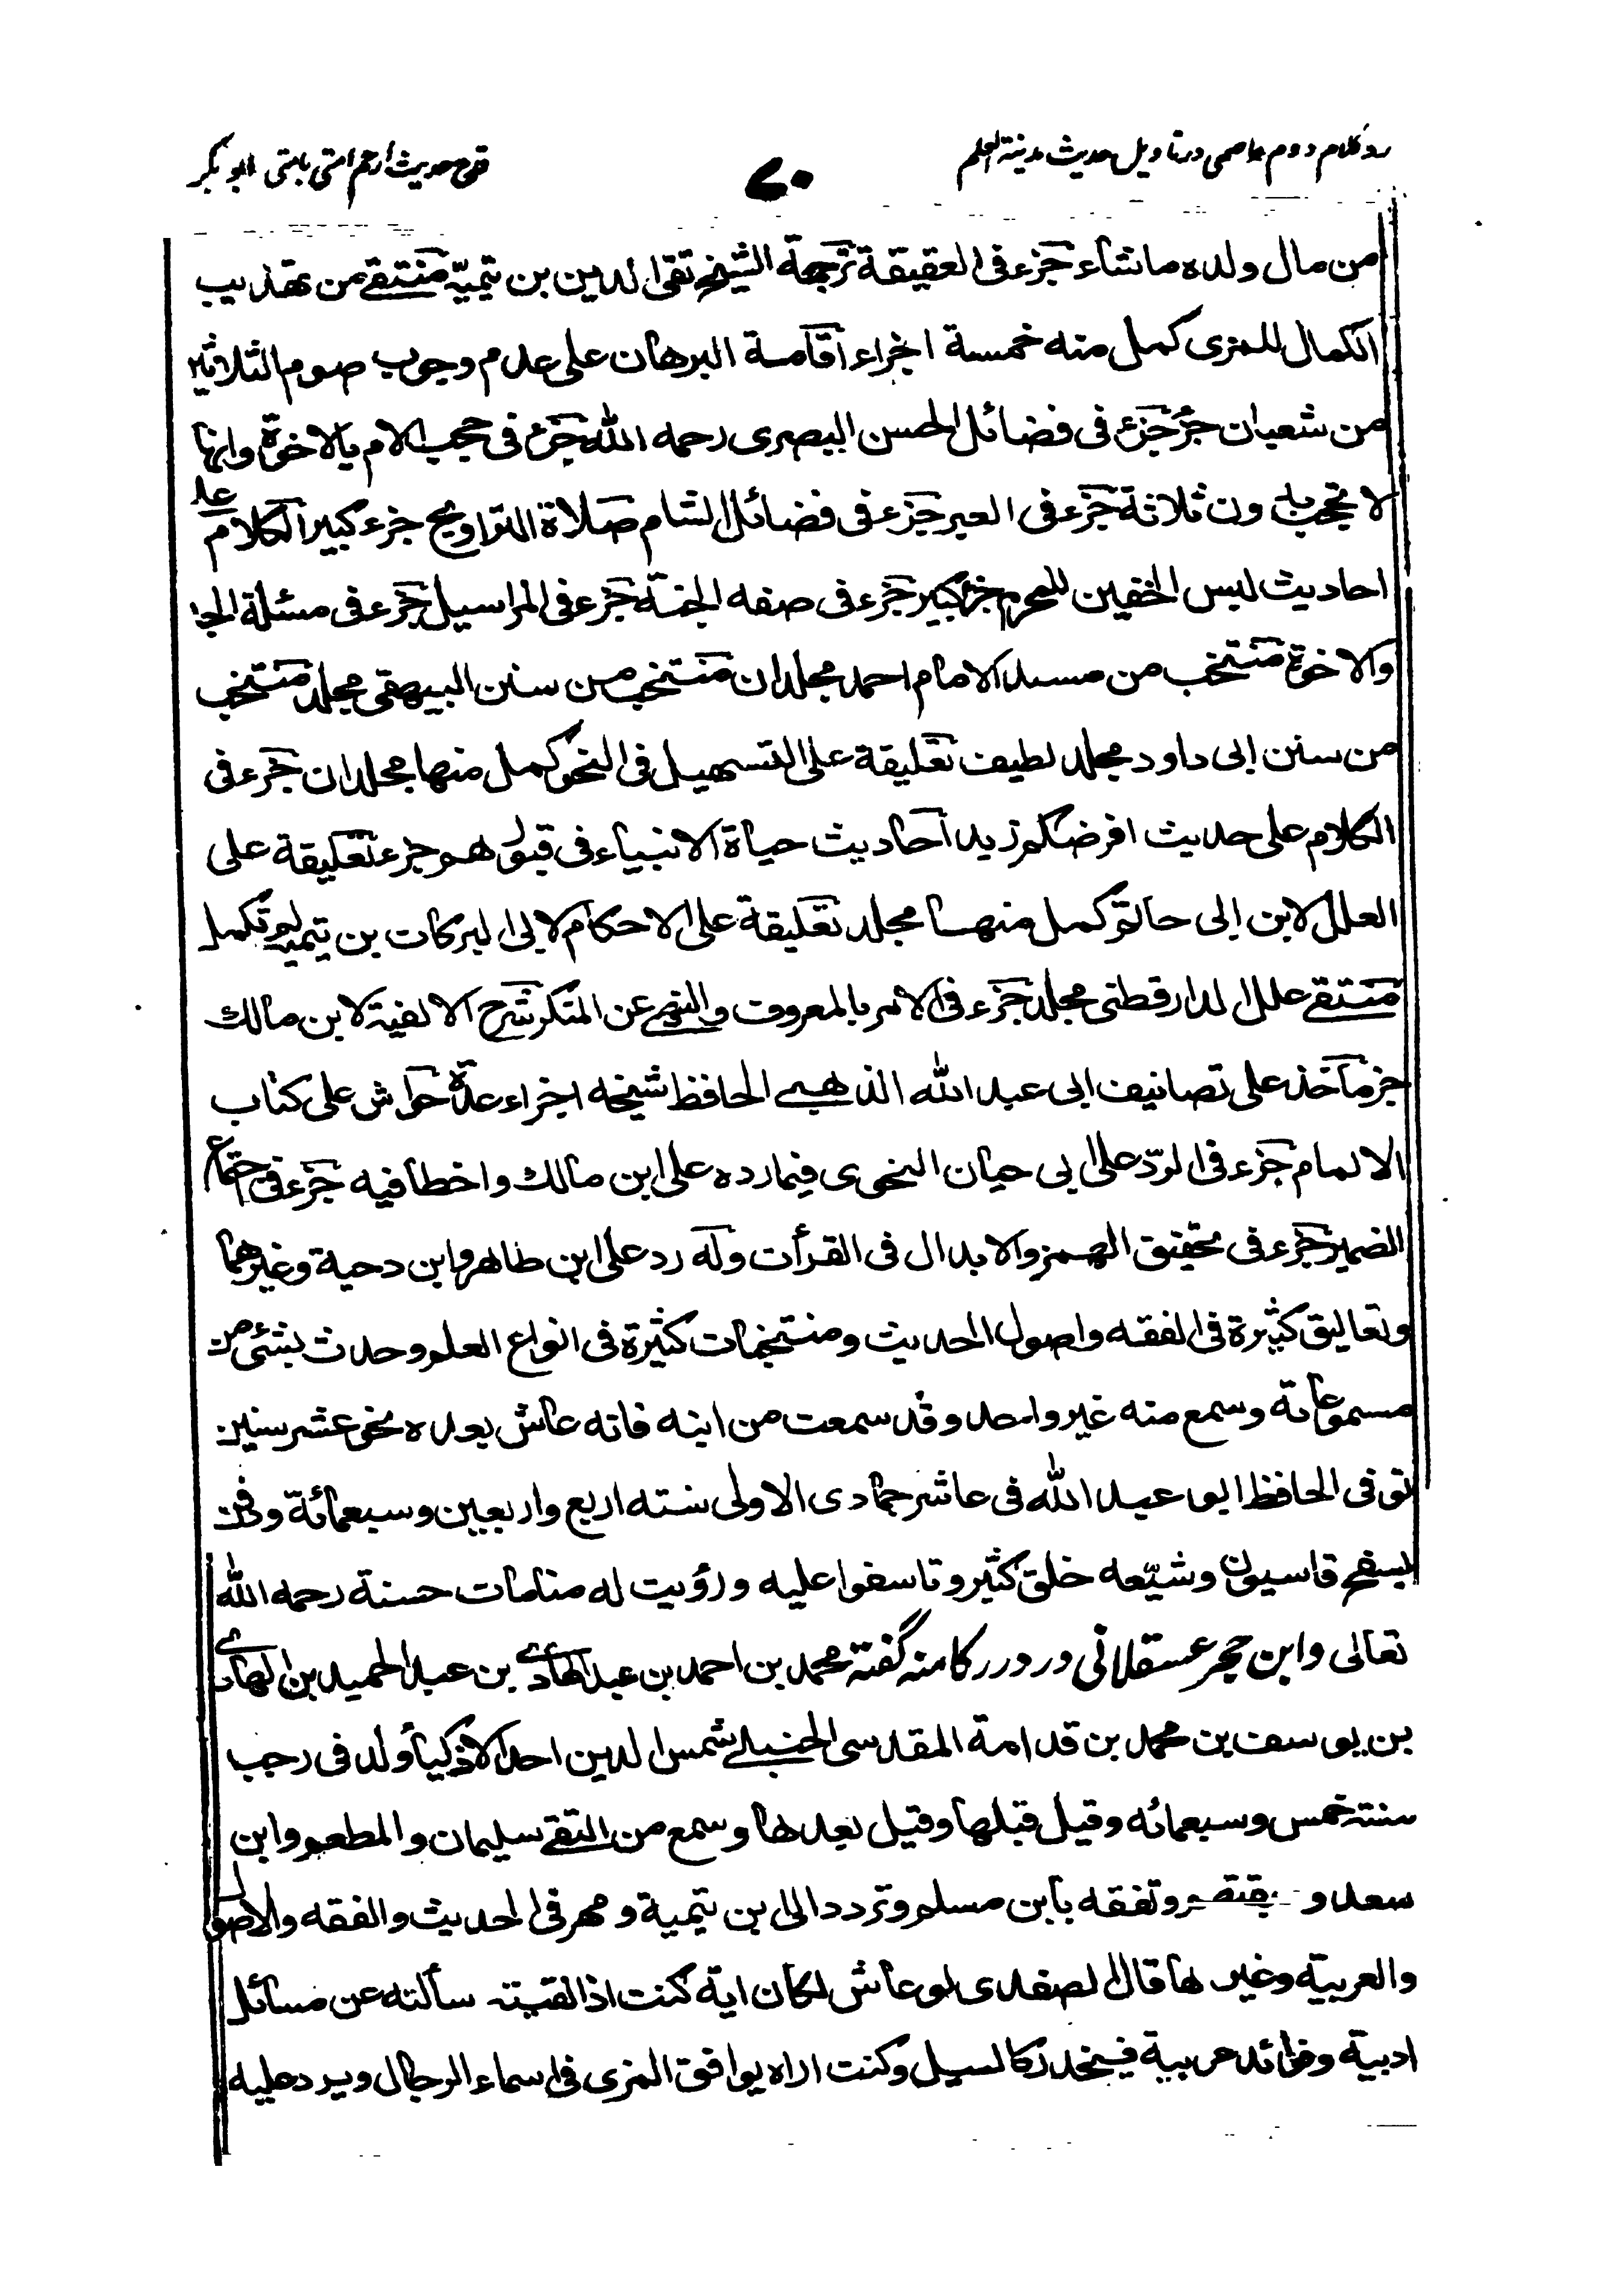 رد کلام دوم عاصمی در تاویل حدیث مدینة العلم
۷۰
قدح حدیث أرحم امتی بامتی ابو بکر
من مال ولده ماشاء جزء فی العقیقة ترجمة الشیخ تقی الدین بن تیمیّة منتقے من تهذیب
الکمال للمزی کمل منه خمسة اجزاء اقامة البرهان علی عدم وجوب صوم الثلاثین
من شعبان جزء جزء فی فضائل الحسن البصری رحمه الله جزء فی حجب الام بالاخوة وانها
لا تحجب بدون ثلاثة جزء فی العبر جزء فی فضائل الشام صلاة التراویح جزء کبیر الکلام علے
احادیث لبس الخفین للمحرم جزء کبیر جزء فی صفه الجنة جزء فی المراسیل جزء فی مسئلة الجد
والاخوة منتخب من مسند الامام احمد مجلدان منتخب من سنن البیهقی مجلد منتخب
من سنن ابی داود مجلد لطیف تعلیقة علی التسهیل فی النحو کمل منها مجلدان جزء فی
الکلام علی حدیث افرضکم زید احادیث حیاة الانبیاء فی قبورهم جزء تعلیقة علی
العلل لابن ابی حاتم کمل منها مجلد تعلیقة علی الاحکام لابی البرکات بن تیمیه لم تکمل
منتقے علل الدارقطنی مجلد جزء فی الامر بالمعروف والنهی عن المنکر شرح الالفیة لابن مالک
جزء مآخذ علی تصانیف ابی عبد الله الذهبے الحافظ شیخه اجزاء عدة حواش علی کتاب
الالمام جزء فی الردّ علی ابی حیان النحوی فیما رده علی ابن مالک واخطأ فیه جزء فی اجتماع
الضمیر جزء فی تحقیق الهمز والابدال فی القرأت وله رد علی ابن طاهر وابن دحیة وغیرهما
وتعالیق کثیرة فی الفقه واصول الحدیث ومنتخبات کثیرة فی انواع العلم وحدث بشئ من
مسموعاته وسمع منه غیر واحد وقد سمعت من ابنه فانه عاش بعده نحو عشر سنین
توفی الحافظ ابو عبد الله فی عاشر جمادی الاولی سنته اربع واربعین وسبعمائة ودفن
بسفح قاسیون وشیّعه خلق کثیر وتاسفوا علیه ورؤیت له منامات حسنة رحمه الله
تعالی وابن حجر عسقلانی در درر کامنه گفته محمد بن احمد بن عبد الهادے بن عبد الحمید بن عبد الهادے
بن یوسف بن محمد بن قدامة المقدسی الحنبلے شمس الدین احد الاذکیاء ولد فی رجب
سنته خمس وسبعمائه وقیل قبلها وقیل بعدها وسمع من التقے سلیمان والمطعم وابن
سعد و وتفقه بابن مسلم وتردد الی ابن تیمیة ومهر فی الحدیث والفقه والاصول
والعربیة وغیرها قال الصفدی لو عاش لکان ایة کنت اذا لقیته سألته عن مسائل
ادبیة وفوائد عربیة فینحدر کالسیل وکنت اراه یوافق المزی فی اسماء الرجال ویرد علیه